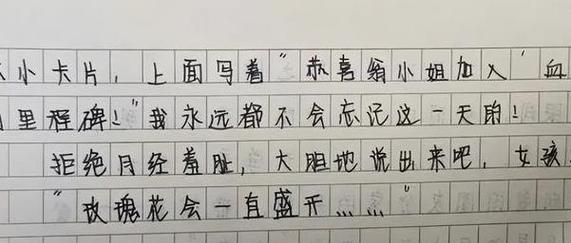 小卡片，上面写着“恭喜翁小姐加入‘血
里程碑！”我永远都不会忘记这一天的！
拒绝月经羞耻，大胆地说出来吧，女孩
“玫瑰花会一直盛开……”